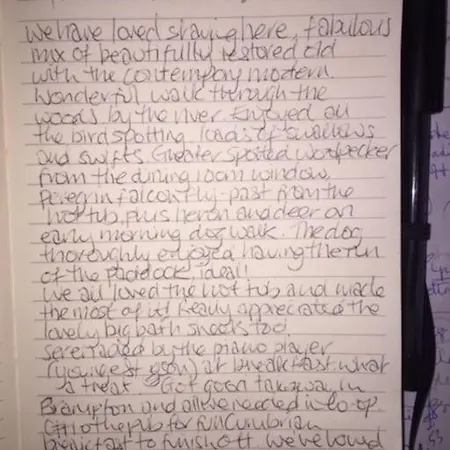 we have loved staying here, fabulous
mix of beautifully restored old
with the contempory modern.
Wonderful walk through the
woods by the river. Enjoyed all
the bird spotting, loads of swallows
and swifts. Greater spotted woodpecker
from the dining room window,
peregrin falcon fly-past from the
hot tub, plus heron and deer on
early morning dog walk. The dog
thoroughly enjoyed having the run
of the paddock, ideal!
We all loved the hot tub and made
the most of it! Really appreciated the
lovely big bath sheets too.
Serenaded by the piano player
(youngest) at breakfast. What
a treat. Got good takeaway in
Brampton and all we needed in Co-op
to the pub for full Cumbrian
breakfast to finish off. We've loved